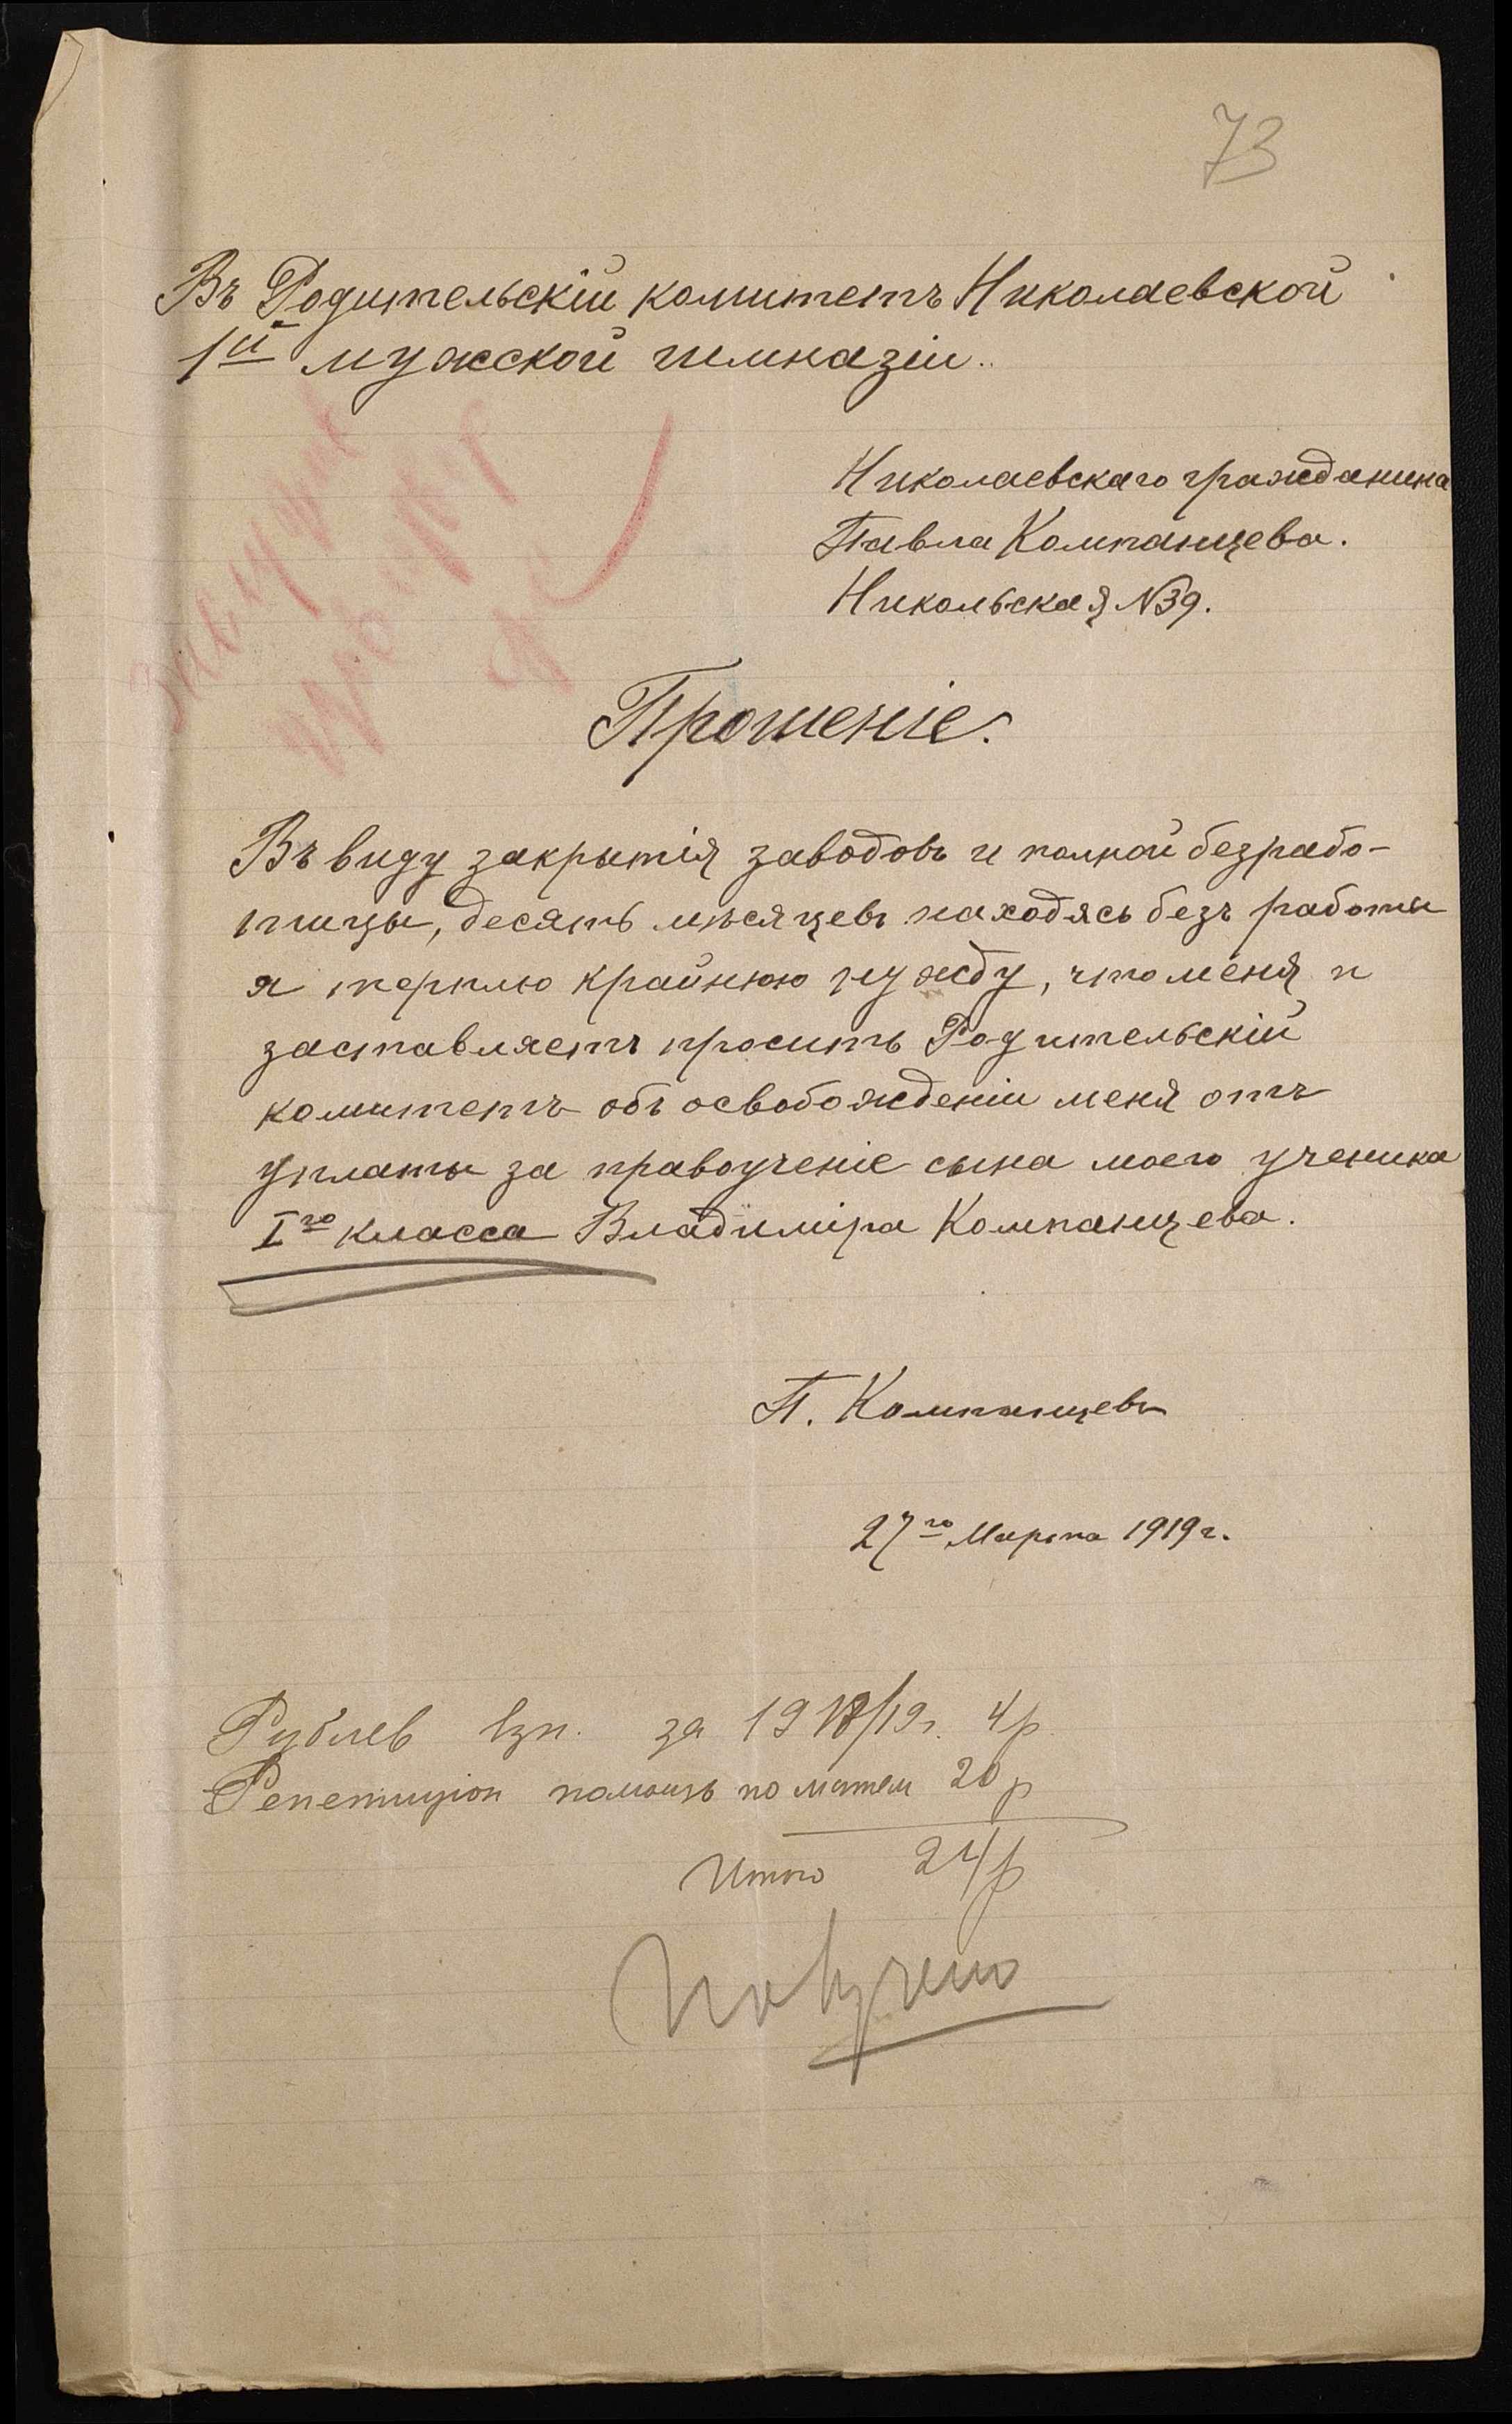 73
Въ Родительскій комитетъ Николаевской
1й мужской гимназіи.
Николаевскаго гражданина
Павла Компанцева.
Никольская №39.
Прошеніе.
Въ виду закрытія заводовъ и полной безрабо-
тицы, десять мѣсяцевъ находясь безъ работы
я терплю крайнюю нужду, что меня и
заставляетъ просить Родительскій
комитетъ объ освобожденіи меня отъ
уплаты за правоученіе сына моего ученика
Iго класса Владиміра Компанцева.
П. Компанцевъ
27го Марта 1919 г.
Рублев взн. за 1918/19 г. 4 р
Репетиціон помощь по матем 20 р
Итого 24 р